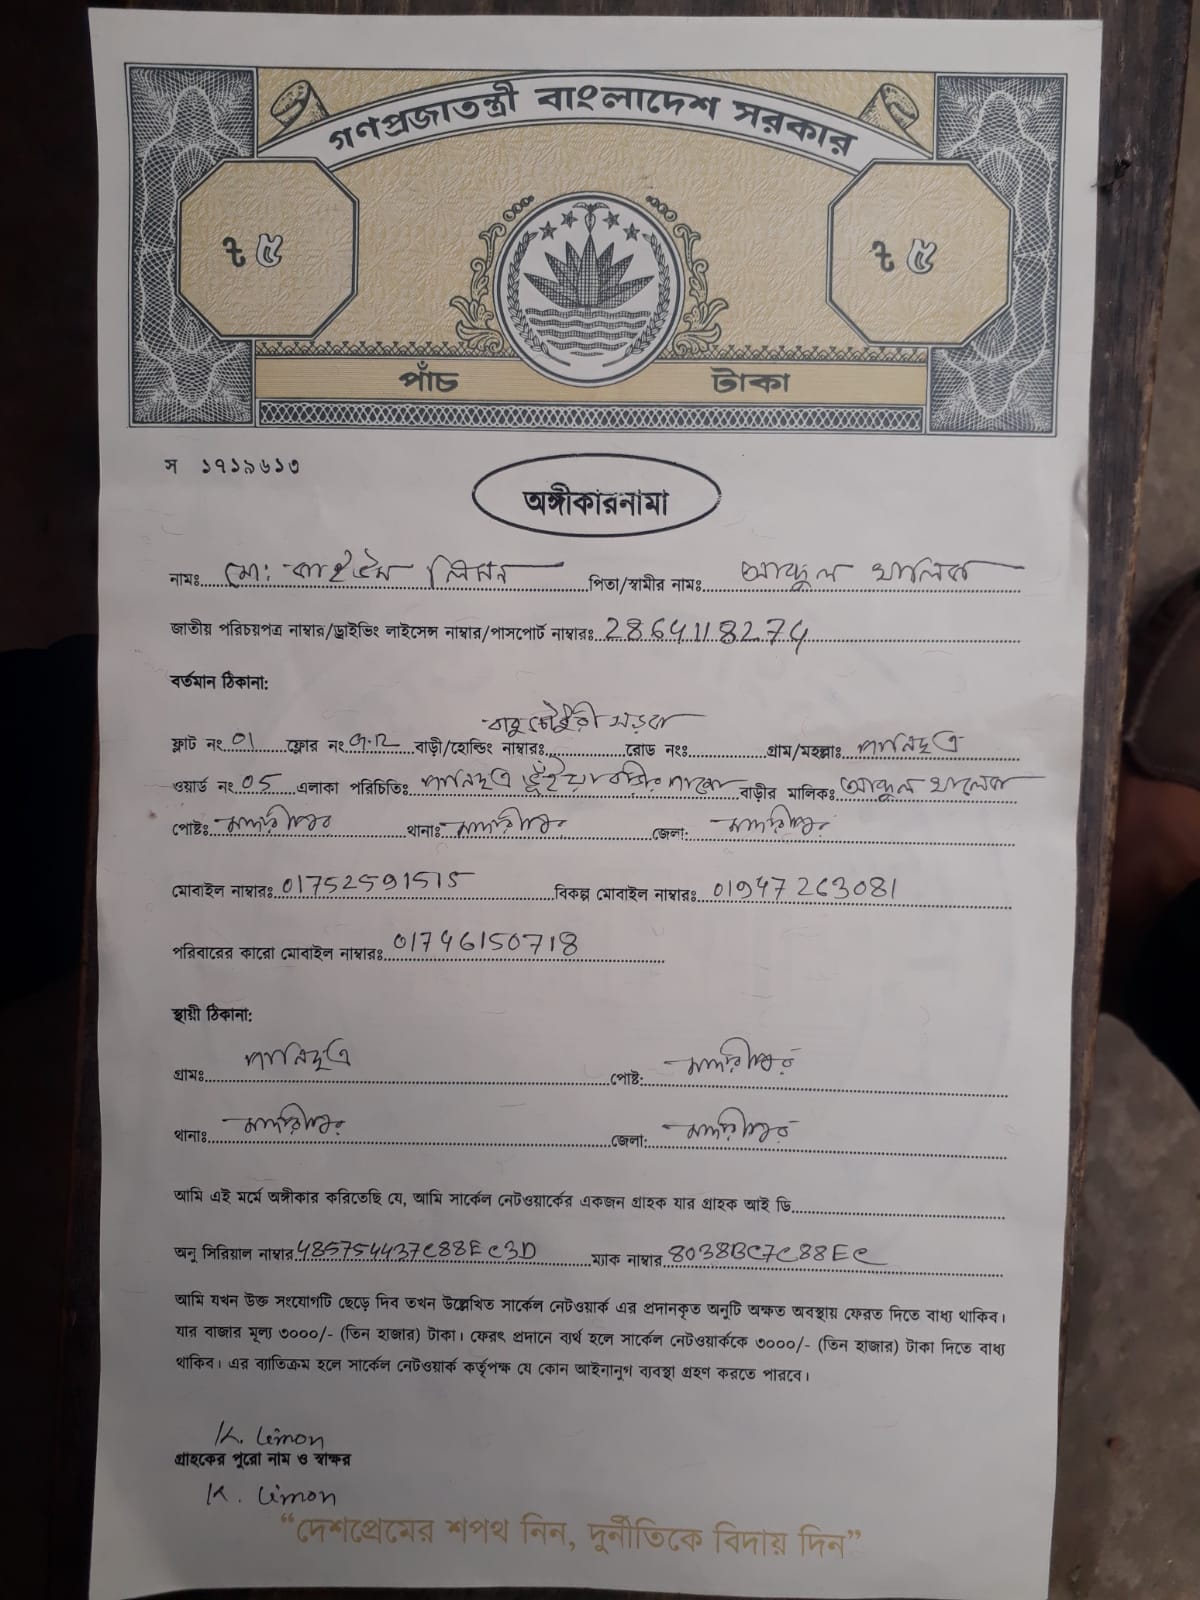 গণপ্রজাতন্ত্রী বাংলাদেশ সরকার
৳ ৫
৳ ৫
পাঁচ টাকা
স ১৭১৯৬১৩
অঙ্গীকারনামা
নামঃ মো: কাইউম লিমন পিতা/স্বামীর নামঃ আব্দুল খালেক
জাতীয় পরিচয়পত্র নাম্বার/ড্রাইভিং লাইসেন্স নাম্বার/পাসপোর্ট নাম্বারঃ 2864118274
বর্তমান ঠিকানা:
ফ্লাট নং 01 ফ্লোর নং বাড়ী/হোল্ডিং নাম্বারঃ রোড নংঃ গ্রাম/মহল্লাঃ পানিছত্র
ওয়ার্ড নং 05 এলাকা পরিচিতিঃ পানিছত্র ভূঁইয়া বাড়ীর পাশে বাড়ীর মালিকঃ আব্দুল খালেক
পোষ্টঃ মাদারীপুর থানাঃ মাদারীপুর জেলা: মাদারীপুর
মোবাইল নাম্বারঃ 01752591515 বিকল্প মোবাইল নাম্বারঃ 01947263081
পরিবারের কারো মোবাইল নাম্বারঃ 01746150718
স্থায়ী ঠিকানা:
গ্রামঃ পানিছত্র পোষ্ট: মাদারীপুর
থানাঃ মাদারীপুর জেলা: মাদারীপুর
আমি এই মর্মে অঙ্গীকার করিতেছি যে, আমি সার্কেল নেটওয়ার্কের একজন গ্রাহক যার গ্রাহক আই ডি
অনু সিরিয়াল নাম্বার 485754437C88EC3D ম্যাক নাম্বার 8038BC7C88EC
আমি যখন উক্ত সংযোগটি ছেড়ে দিব তখন উল্লেখিত সার্কেল নেটওয়ার্ক এর প্রদানকৃত অনুটি অক্ষত অবস্থায় ফেরত দিতে বাধ্য থাকিব।
যার বাজার মূল্য ৩০০০/- (তিন হাজার) টাকা। ফেরৎ প্রদানে ব্যর্থ হলে সার্কেল নেটওয়ার্ককে ৩০০০/- (তিন হাজার) টাকা দিতে বাধ্য
থাকিব। এর ব্যাতিক্রম হলে সার্কেল নেটওয়ার্ক কর্তৃপক্ষ যে কোন আইনানুগ ব্যবস্থা গ্রহণ করতে পারবে।
K. Limon
গ্রাহকের পুরো নাম ও স্বাক্ষর
K. Limon
“দেশপ্রেমের শপথ নিন, দুর্নীতিকে বিদায় দিন”